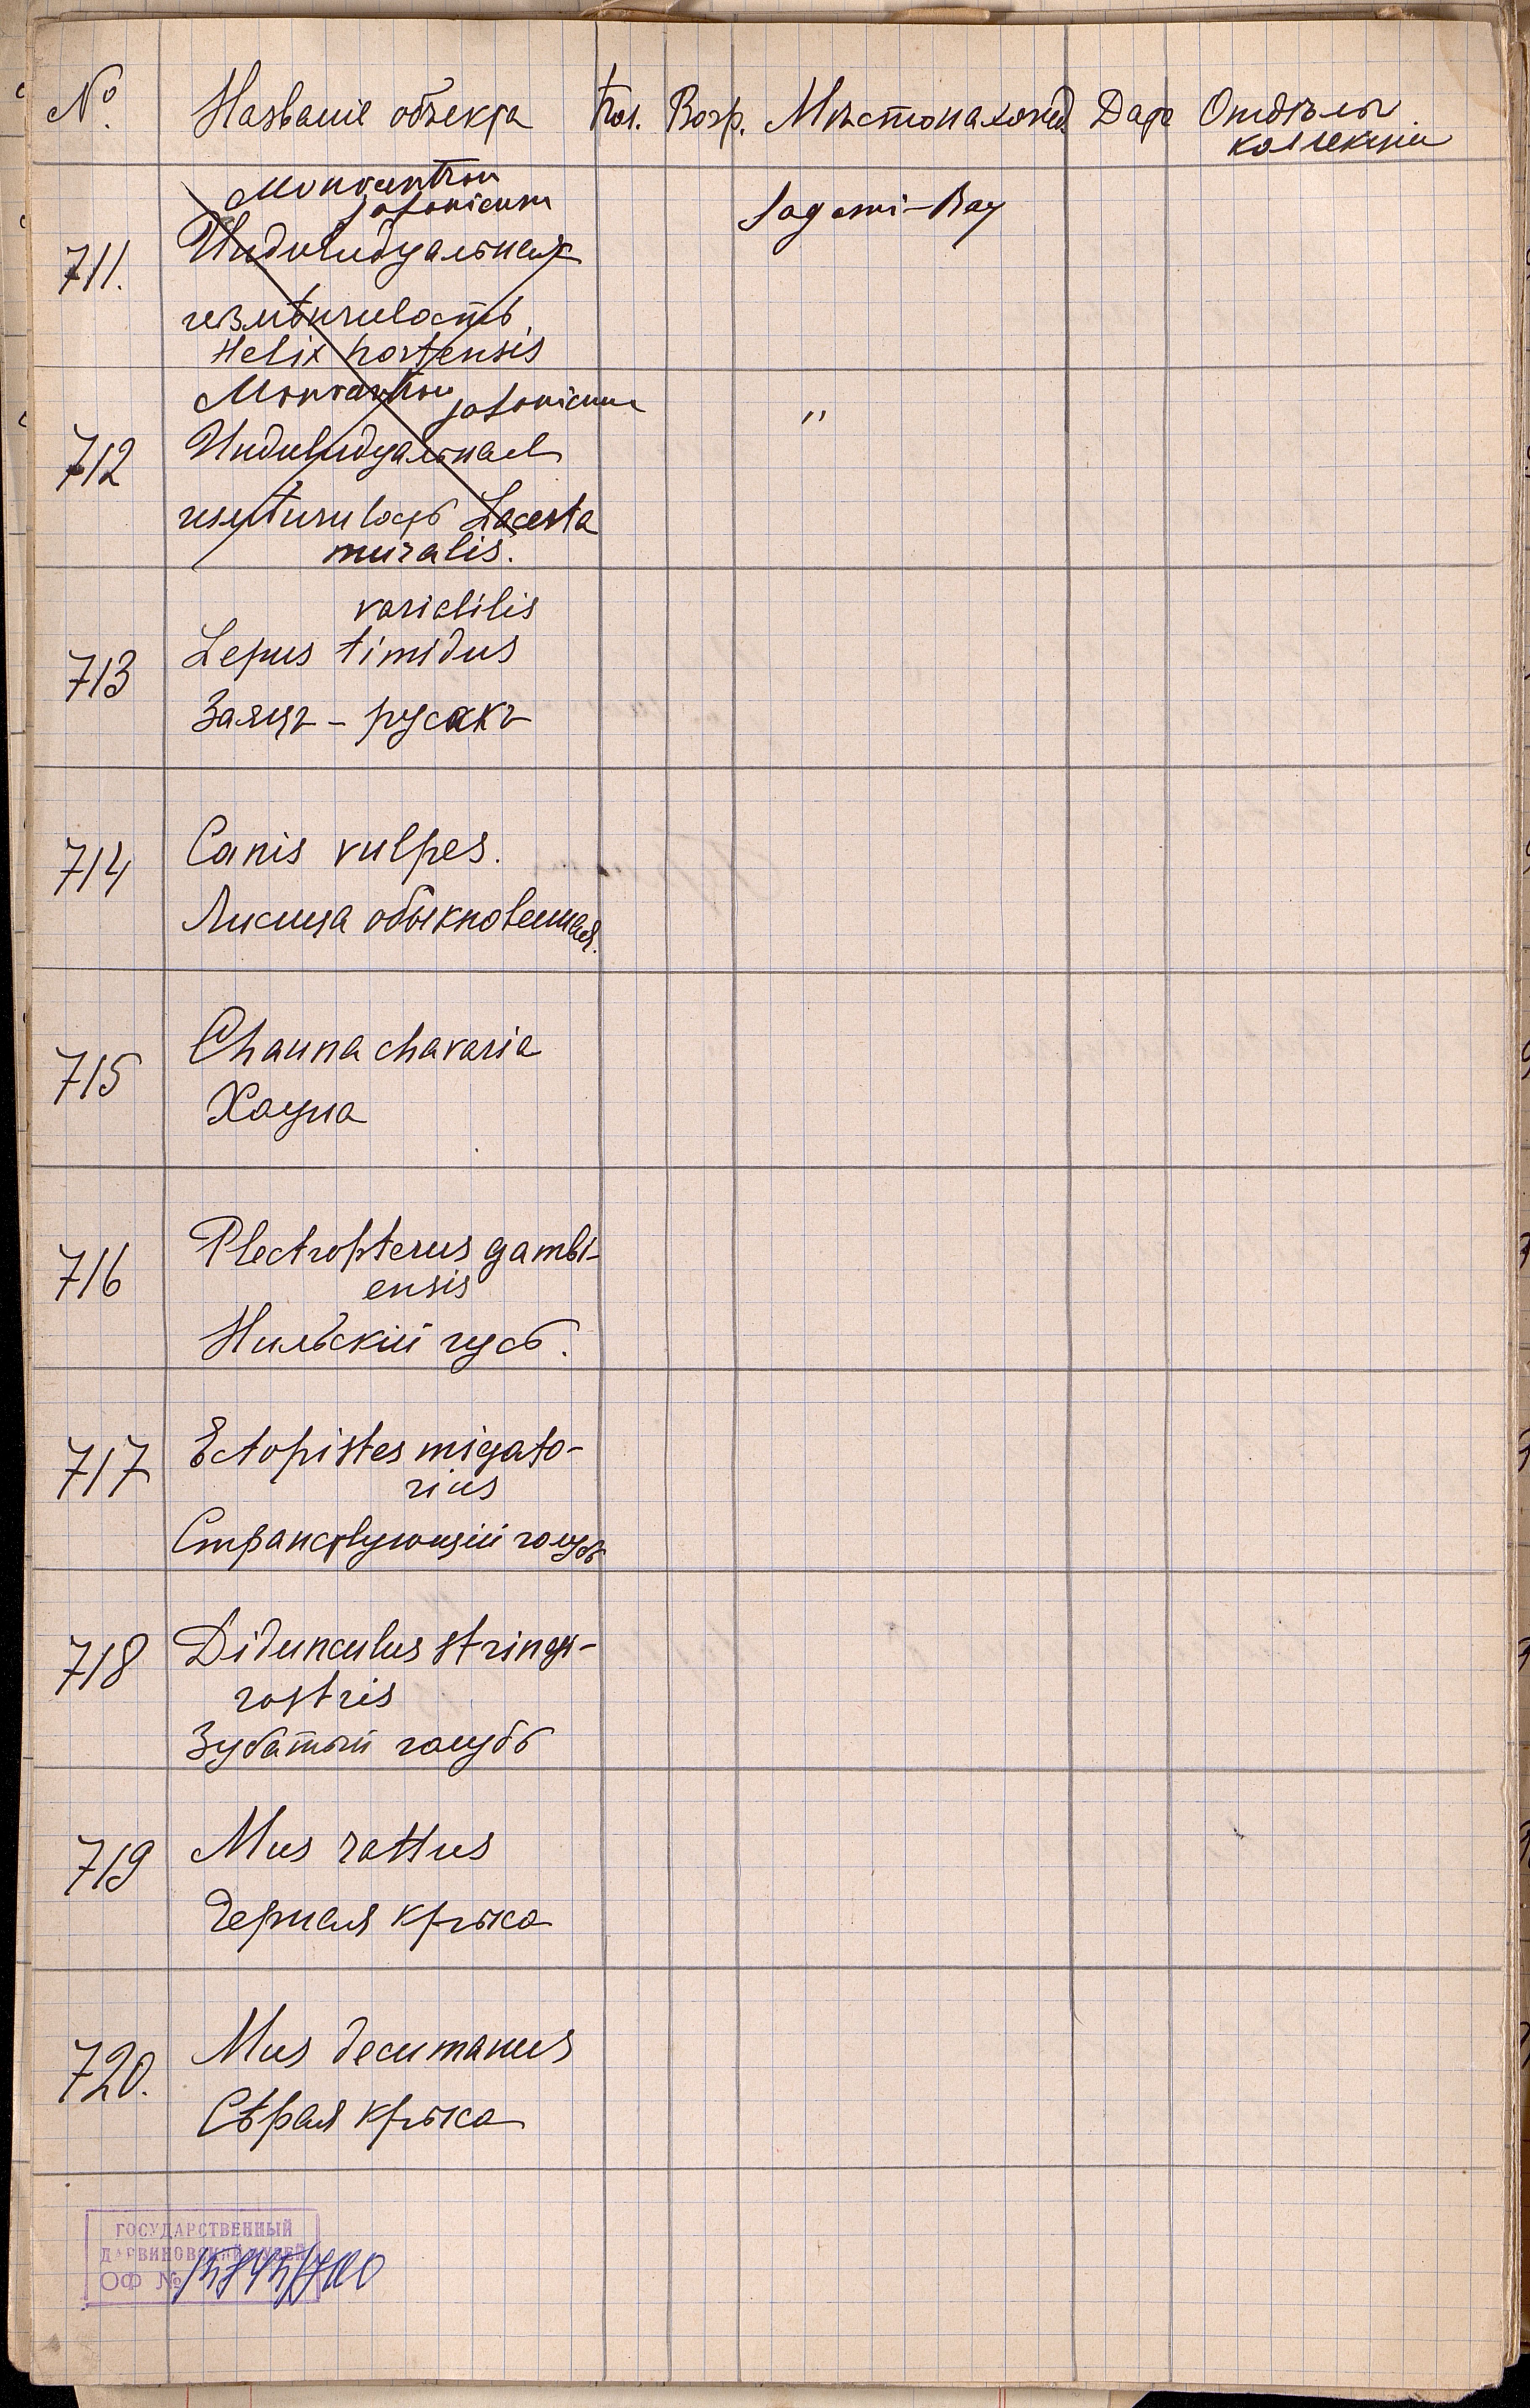 № Названіе объекта Пол. Возр. Мѣстонахожд. Дата Отдѣлы
коллекціи
Monocentron
japonicum Sagami-Bay
711. Индивидуальная
измѣнчивость
Helix hortensis
Monocentron japonicum "
712 Индивидуальная
измѣнчивость Lacerta
muralis.
variabilis
713 Lepus timidus
Заяцъ - русакъ
714 Canis vulpes.
Лисица обыкновенная.
715 Chauna chavaria
Хауна
716 Plectropterus gambi-
ensis
Нильскій гусь.
717 Ectopistes migato-
rius
Странствующій голубь
718 Didunculus
rostris
Зубатый голубь
719 Mus rattus
Черная крыса
720. Mus decumanus
Сѣрая крыса
ГОСУДАРСТВЕННЫЙ
ДАРВИНОВСКИЙ МУЗЕЙ
ОФ №